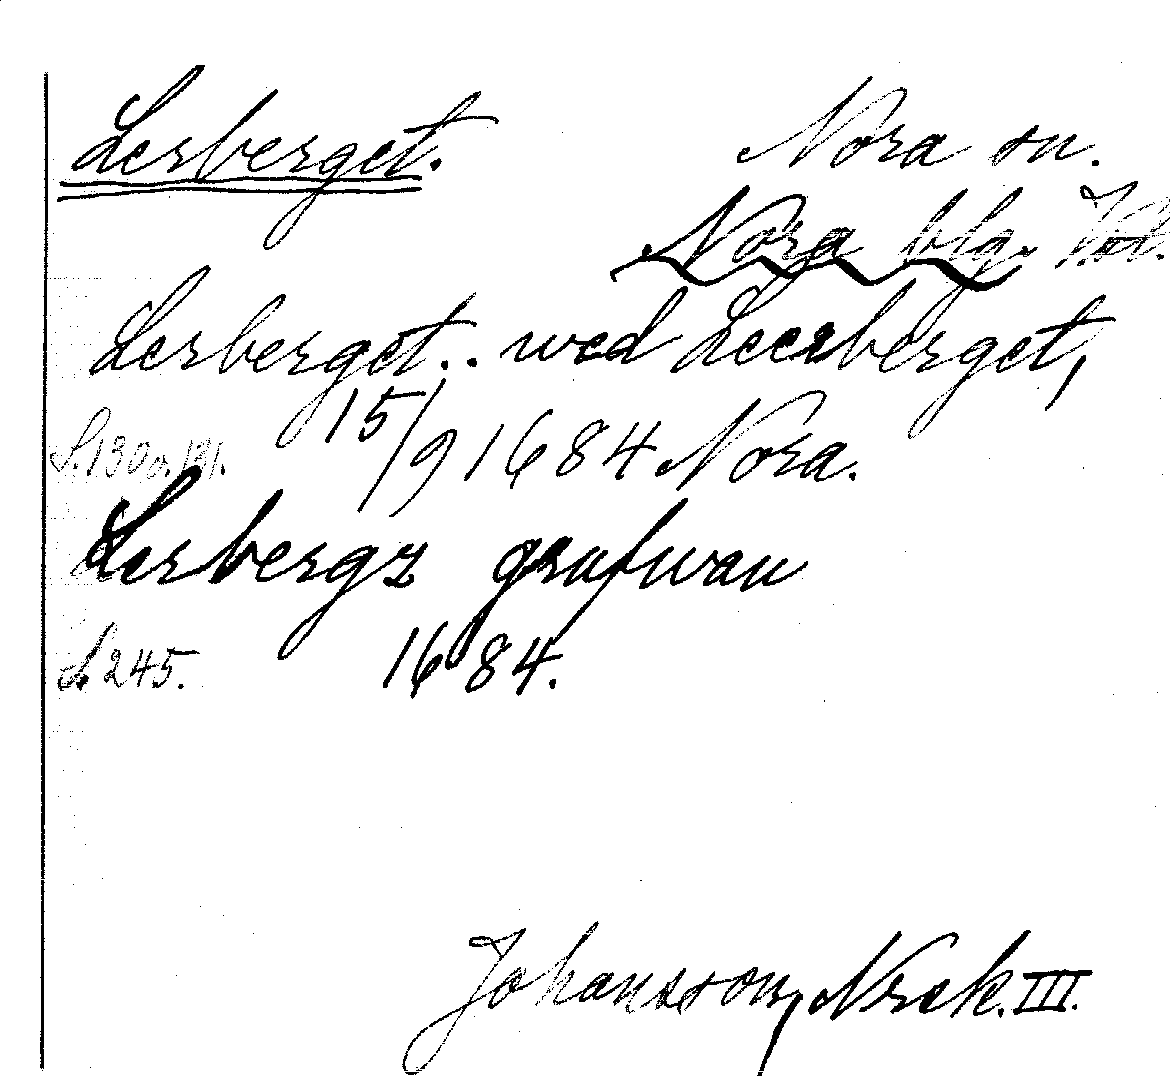 Lerberget. Nora sn.
Nora blg. Vstl.
Lerberget.. wed Leerberget,
15/9 1684 Nora.
S. 130 o. 131.
Lerbergz grufwan
S. 245. 1684.
Johansson, Nrck. III.